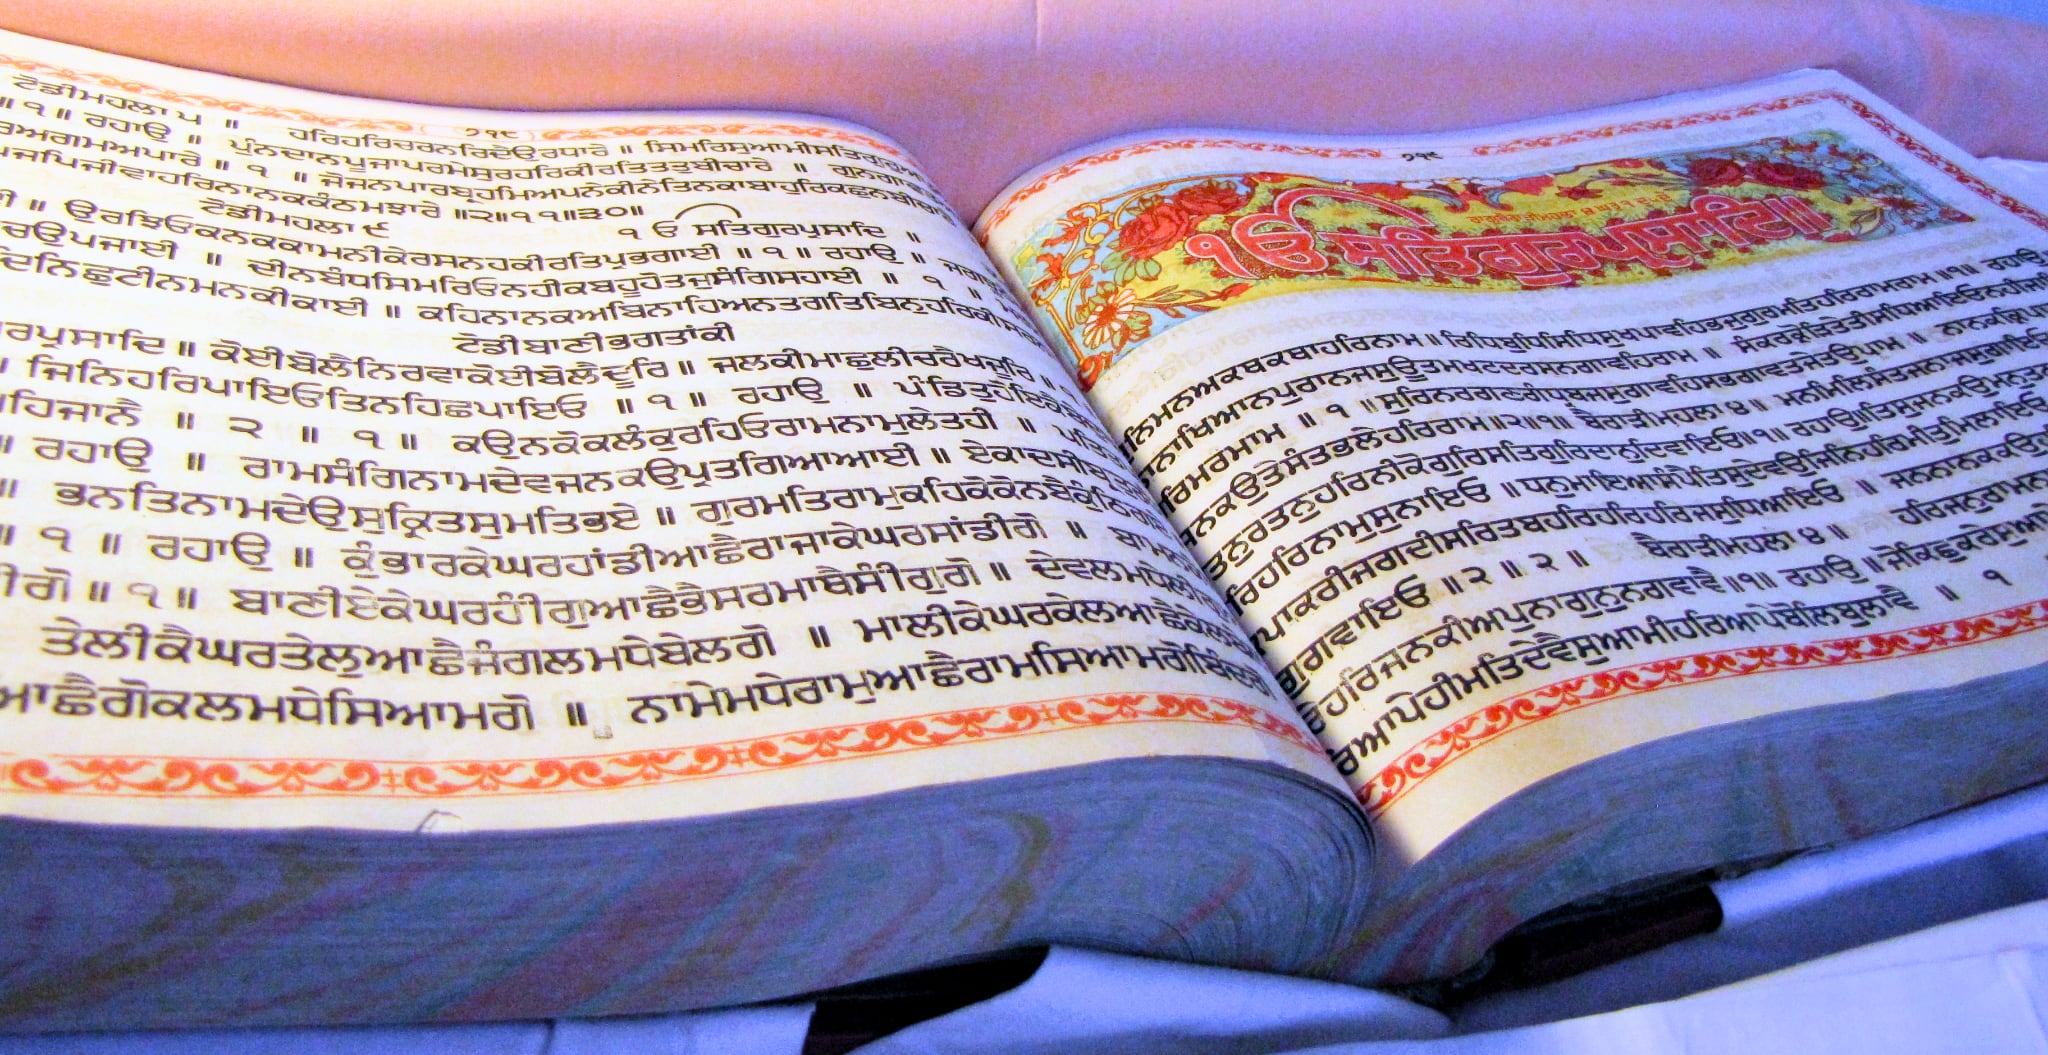 ੭੧੮
ਟੋਡੀਮਹਲਾ ੫ ॥ ਹਰਿਹਰਿਚਰਨਰਿਦੈਉਰਧਾਰੇ ॥ ਸਿਮਰਿਸੁਆਮੀਸਤਿਗੁਰੁ
॥ ੧ ॥ ਰਹਾਉ ॥ ਪੁੰਨਦਾਨਪੂਜਾਪਰਮੇਸੁਰਹਰਿਕੀਰਤਿਤਤੁਬੀਚਾਰੇ ॥ ਗੁਨਗਾਵਤ
ਅਗਮਅਪਾਰੇ ॥ ੧ ॥ ਜੋਜਨਪਾਰਬ੍ਰਹਮਿਅਪਨੇਕੀਨੇਤਿਨਕਾਬਾਹੁਰਿਕਛੁਨਬੀਚਾਰੇ
ਜਪਿਜੀਵਾਹਰਿਨਾਨਕਕੰਠਮਝਾਰੇ ॥੨॥੧੧॥੩੦॥
ਟੋਡੀਮਹਲਾ ੯ ੧ ਓ ਸਤਿਗੁਰਪ੍ਰਸਾਦਿ ॥
॥ ਉਰਝਿਓਕਨਕਕਾਮਨੀਕੇਰਸਨਹਕੀਰਤਿਪ੍ਰਭਗਾਈ ॥ ੧ ॥ ਰਹਾਉ ॥ ਜਗ
ਉਪਜਾਈ ॥ ਦੀਨਬੰਧਸਿਮਰਿਓਨਹੀਕਬਹੂਹੋਤਜੁਸੰਗਿਸਹਾਈ ॥ ੧ ॥
ਦਿਨਿਛੁਟੀਨਮਨਕੀਕਾਈ ॥ ਕਹਿਨਾਨਕਅਬਿਨਾਹਿਅਨਤਗਤਿਬਿਨੁਹਰਿਕੀ
ਟੋਡੀਬਾਣੀਭਗਤਾਂਕੀ
ਰਪ੍ਰਸਾਦਿ ॥ ਕੋਈਬੋਲੈਨਿਰਵਾਕੋਈਬੋਲੈਦੂਰਿ ॥ ਜਲਕੀਮਾਛੁਲੀਚਰੈਖਜੂਰਿ ॥
॥ ਜਿਨਿਹਰਿਪਾਇਓਤਿਨਹਿਛਪਾਇਓ ॥ ੧ ॥ ਰਹਾਉ ॥ ਪੰਡਿਤੁਹੋਇਕੈ
ਹਿਜਾਨੈ ॥ ੨ ॥ ੧ ॥ ਕਉਨਕੋਕਲੰਕੁਰਹਿਓਰਾਮਨਾਮੁਲੇਤਹੀ ॥
॥ ਰਹਾਉ ॥ ਰਾਮਸੰਗਿਨਾਮਦੇਵਜਨਕਉਪ੍ਰਤਗਿਆਆਈ ॥ ਏਕਾਦਸੀਬ੍ਰਤੁ
॥ ਭਨਤਿਨਾਮਦੇਉਸੁਕ੍ਰਿਤਸੁਮਤਿਭਏ ॥ ਗੁਰਮਤਿਰਾਮੁਕਹਿਕੋਕੋਨਬੈਕੁੰਠਿਗਏ
॥ ੧ ॥ ਰਹਾਉ ॥ ਕੁੰਭਾਰਕੇਘਰਹਾਂਡੀਆਛੈਰਾਜਾਕੇਘਰਸਾਂਡੀਗੋ ॥ ਬਾਮਨ
ੀਗੋ ॥ ੧ ॥ ਬਾਣੀਏਕੇਘਰਹੀਂਗੁਆਛੈਭੈਸਰਮਾਥੈਸੀਂਗੁਗੋ ॥ ਦੇਵਲਮਧੇਲੀ
ਤੇਲੀਕੈਘਰਤੇਲੁਆਛੈਜੰਗਲਮਧੇਬੇਲਗੋ ॥ ਮਾਲੀਕੇਘਰਕੇਲਆਛੈਕੇਲ
ਆਛੈਗੋਕਲਮਧੇਸਿਆਮਗੋ ॥ ਨਾਮੇਮਧੇਰਾਮੁਆਛੈਰਾਮਸਿਆਮਗੋਬਿੰਦਗੋ
੭੧੯
ੴ ਸਤਿਗੁਰਪ੍ਰਸਾਦਿ॥
ਮਨਅਕਥਕਥਾਹਰਿਨਾਮ ॥ ਰਿਧਿਬੁਧਿਸਿਧਿਸੁਖਪਾਵਹਿਭਜੁਗੁਰਮਤਿਹਰਿਰਾਮਰਾਮ ॥੧॥ ਰਹਾਉ
ਨਾਖਿਆਨਪੁਰਾਨਜਸੁਊਤਮਖਟਦਰਸਨਗਾਵਹਿਰਾਮ ॥ ਸੰਕਰਕ੍ਰੋੜਿਤੇਤੀਸਧਿਆਇਓਨਹੀਜਾਨਿਓ
ਰਿਮਰਮਾਮ ॥ ੧ ॥ ਸੁਰਿਨਰਗਣਗੰਧ੍ਰਬਜਸੁਗਾਵਹਿਸਭਗਾਵਤਜੇਤਉਪਾਮ ॥ ਨਾਨਕਕ੍ਰਿਪਾ
ਨਕਉਤੇਸੰਤਭਲੇਹਰਿਰਾਮ ॥੨॥੧॥ ਬੈਰਾੜੀਮਹਲਾ ੪ ॥ ਮਨਮਿਲਿਸੰਤਜਨਾਜਸੁਗਾਇਓ
ਤਨੁਰਤਨੁਹਰਿਨੀਕੋਗੁਰਿਸਤਿਗੁਰਿਦਾਨੁਦਿਵਾਇਓ ॥੧॥ ਰਹਾਉ ॥ ਤਿਸੁਜਨਕਉਮਨੁਤਨੁ
ਰਿਹਰਿਨਾਮੁਸੁਨਾਇਓ ॥ ਧਨੁਮਾਇਆਸੰਪੈਤਿਸੁਦੇਵਉਜਿਨਿਹਰਿਮੀਤੁਮਿਲਾਇਓ
ਪਾਕਰੀਜਗਦੀਸਰਿਤਬਹਰਿਹਰਿਹਰਿਜਸੁਧਿਆਇਓ ॥ ਜਨਨਾਨਕਕਉ
ਗਵਾਇਓ ॥ ੨ ॥ ੨ ॥ ਬੈਰਾੜੀਮਹਲਾ ੪ ॥ ਹਰਿਜਨੁਰਾਮਨਾਮ
ਹਰਿਜਨਕੀਅਪੁਨਾਗੁਨੁਨਗਵਾਵੈ ॥੧॥ ਰਹਾਉ ॥ ਜੋਕਿਛੁਕਰੇਸੁਆਪੇ
ਰਿਆਪੇਹੀਮਤਿਦੇਵੈਸੁਆਮੀਹਰਿਆਪੇਬੋਲਿਬੁਲਾਵੈ ॥ ੧